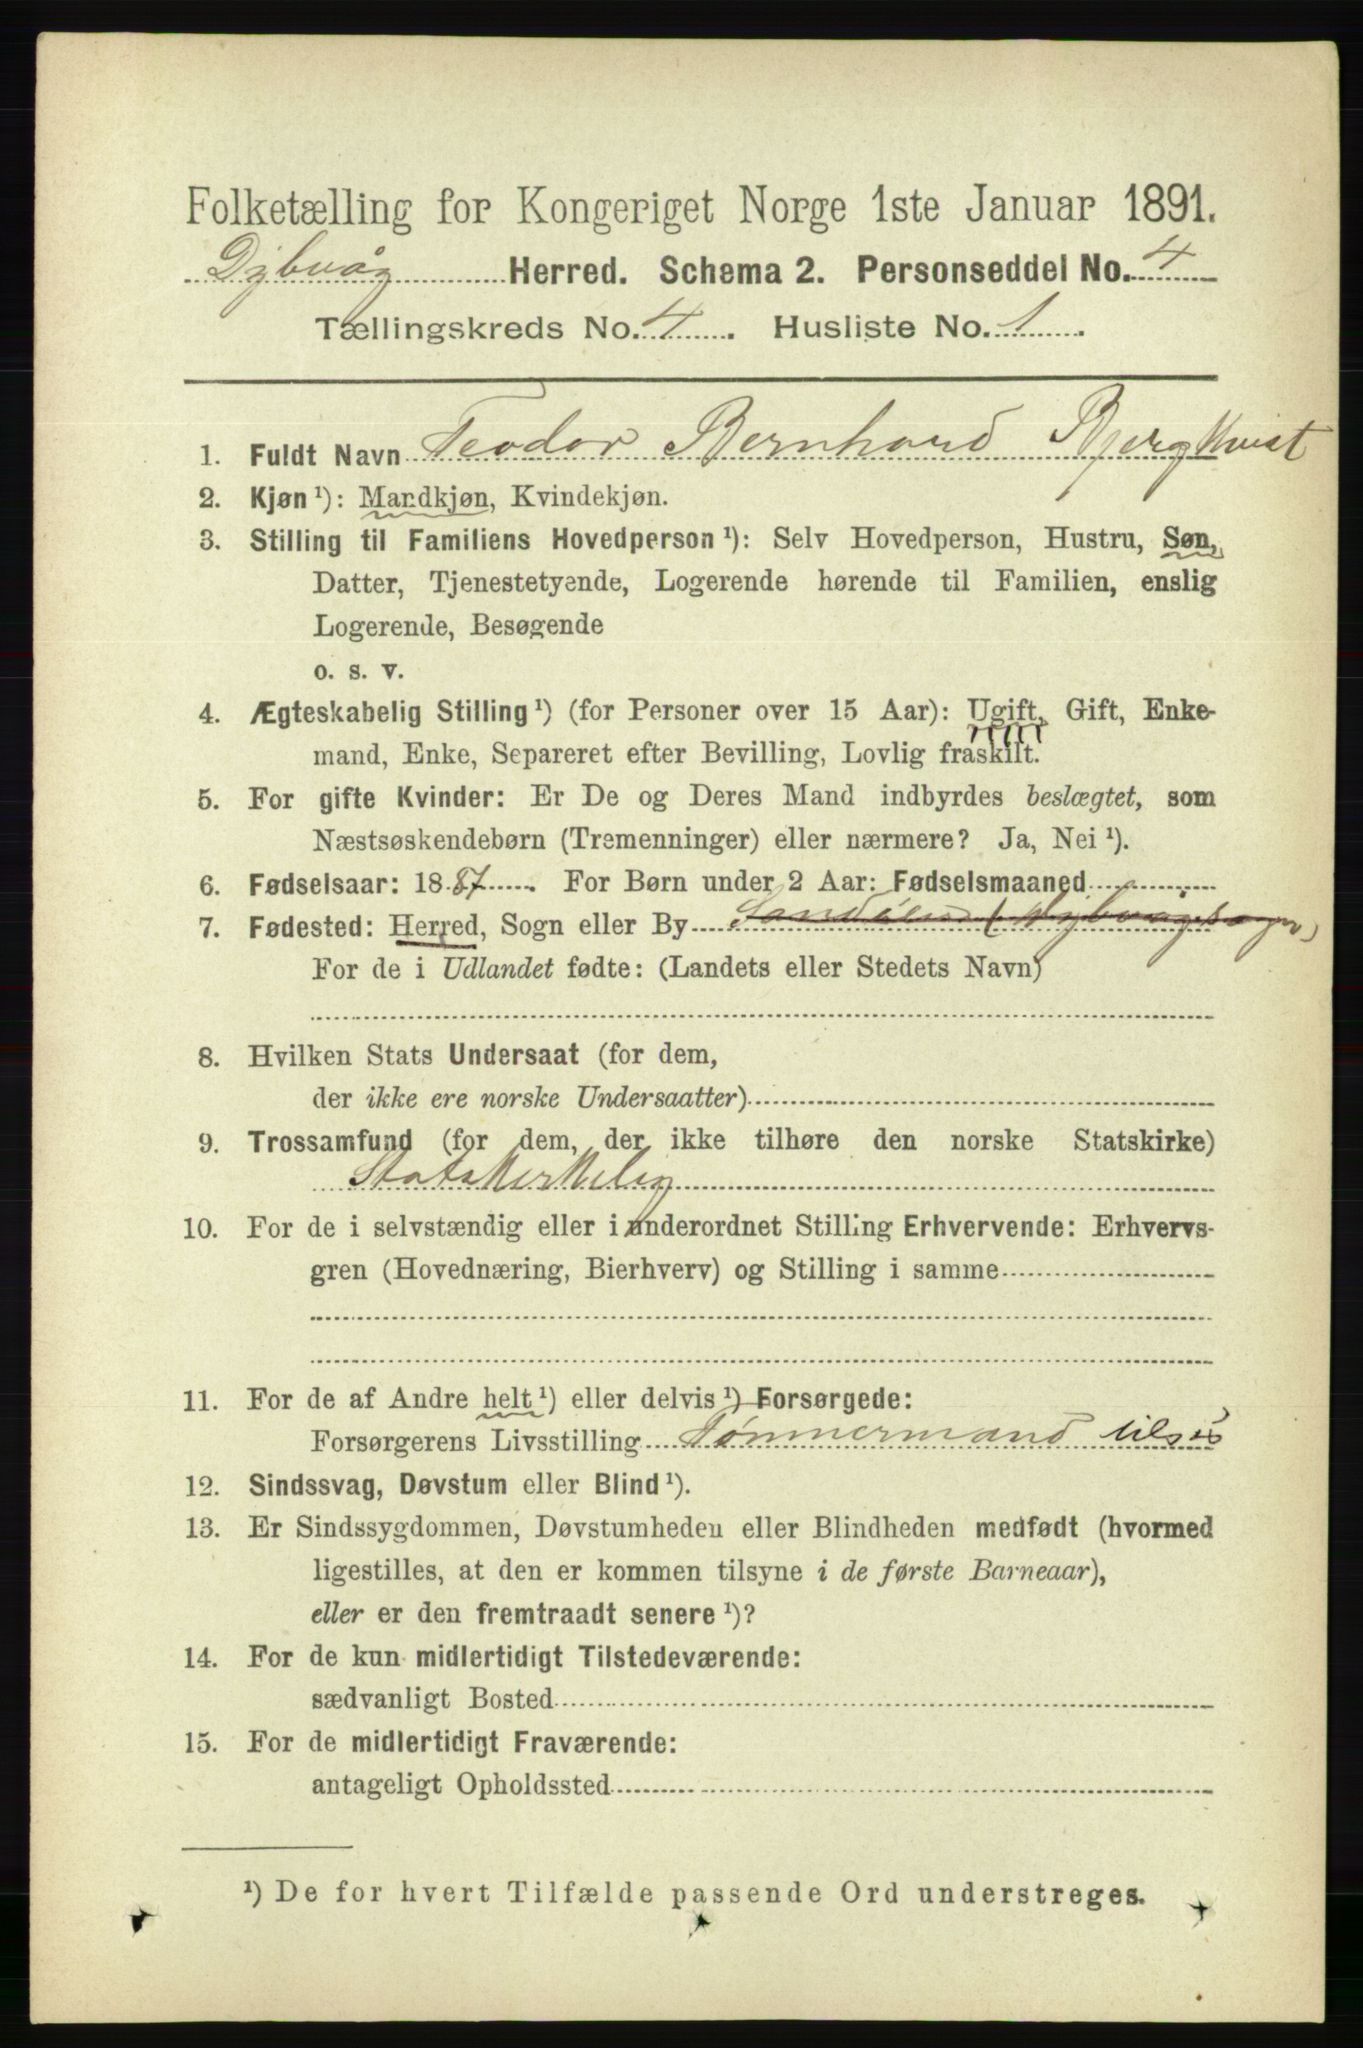 Folketælling for Kongeriget Norge 1ste Januar 1891.
Dybvåg Herred. Schema 2. Personseddel No. 4
Tællingskreds No. 4. Husliste No. 1.
1. Fuldt Navn Teodor Bernhard Bjergkvist
2. Kjøn ¹): Mandkjøn, Kvindekjøn.
3. Stilling til Familiens Hovedperson ¹): Selv Hovedperson, Hustru, Søn,
Datter, Tjenestetyende, Logerende hørende til Familien, enslig
Logerende, Besøgende
o. s. v.
4. Ægteskabelig Stilling ¹) (for Personer over 15 Aar): Ugift, Gift, Enke-
mand, Enke, Separeret efter Bevilling, Lovlig fraskilt.
5. For gifte Kvinder: Er De og Deres Mand indbyrdes beslægtet, som
Næstsøskendebørn (Tremenninger) eller nærmere? Ja, Nei ¹).
6. Fødselsaar: 1887. For Børn under 2 Aar: Fødselsmaaned
7. Fødested: Herred, Sogn eller By Sandøen (Dybvåg sogn)
For de i Udlandet fødte: (Landets eller Stedets Navn)
8. Hvilken Stats Undersaat (for dem,
der ikke ere norske Undersaatter)
9. Trossamfund (for dem, der ikke tilhøre den norske Statskirke)
Statskirkelig
10. For de i selvstændig eller i underordnet Stilling Erhvervende: Erhvervs-
gren (Hovednæring, Bierhverv) og Stilling i samme
11. For de af Andre helt ¹) eller delvis ¹) Forsørgede:
Forsørgerens Livsstilling Tømmermand tilsjøs
12. Sindssvag, Døvstum eller Blind ¹).
13. Er Sindssygdommen, Døvstumheden eller Blindheden medfødt (hvormed
ligestilles, at den er kommen tilsyne i de første Barneaar),
eller er den fremtraadt senere ¹)?
14. For de kun midlertidigt Tilstedeværende:
sædvanligt Bosted
15. For de midlertidigt Fraværende:
antageligt Opholdssted
¹) De for hvert Tilfælde passende Ord understreges.